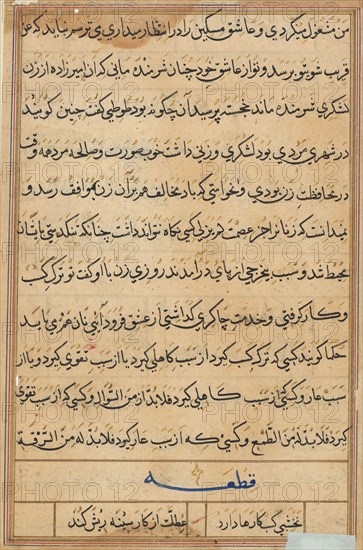 من مشغول میکردی و عاشق مسکین را در انتظار میداری می ترسم نباید که
قریب شوی تو برسد و تو از عاشق خود چنان شرمنده مانی که آن امیرزاده از زن
لشکری شرمنده ماند خجسته پرسید آن چگونه بود طوطی گفت چنین گویند
در شهری مردی بود لشکری و زنی داشت خوب صورت و صالحه مرد همه وقت
در محافظت زن بودی و نخواستی که باد مخالف هم بر آن زن موافق رسد و
نمیدانست که زنانرا جز عصمت غریزی کسی نگاه نتواند داشت چنانکه تنگدستی بایشان
محیط شد و سبب بیخرجی از پای در آمدند روزی زن با او گفت تو ترک کسب
و کار گرفتی و خدمت چاکری گذاشتی از عنق فرود آیی نان عمری باید
حکما گویند کسی که ترک کسب گیرد از سبب کاهلی گیرد یا از سبب تقوی گیرد و یا از
سبب عار و کسی از سبب کاهلی گیرد فلا بد من السوال و کسی که از سبب تقوی
گیرد فلا بد له من الطمع و کسی که از سبب عار گیرد فلا بد له من السرقة
قطعه
نخشبی کسب کارها دارد عطلت از کار سینه ریش کند
PHOTO12